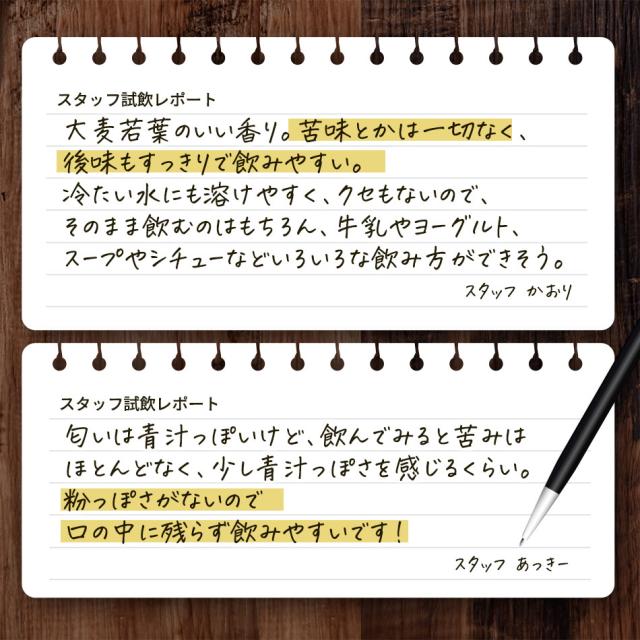 スタッフ試飲レポート
大麦若葉のいい香り。苦味とかは一切なく、
後味もすっきりで飲みやすい。
冷たい水にも溶けやすく、クセもないので、
そのまま飲むのはもちろん、牛乳やヨーグルト、
スープやシチューなどいろいろな飲み方ができそう。
スタッフ かおり
スタッフ試飲レポート
匂いは青汁っぽいけど、飲んでみると苦みは
ほとんどなく、少し青汁っぽさを感じるくらい。
粉っぽさがないので
口の中に残らず飲みやすいです!
スタッフ あっきー